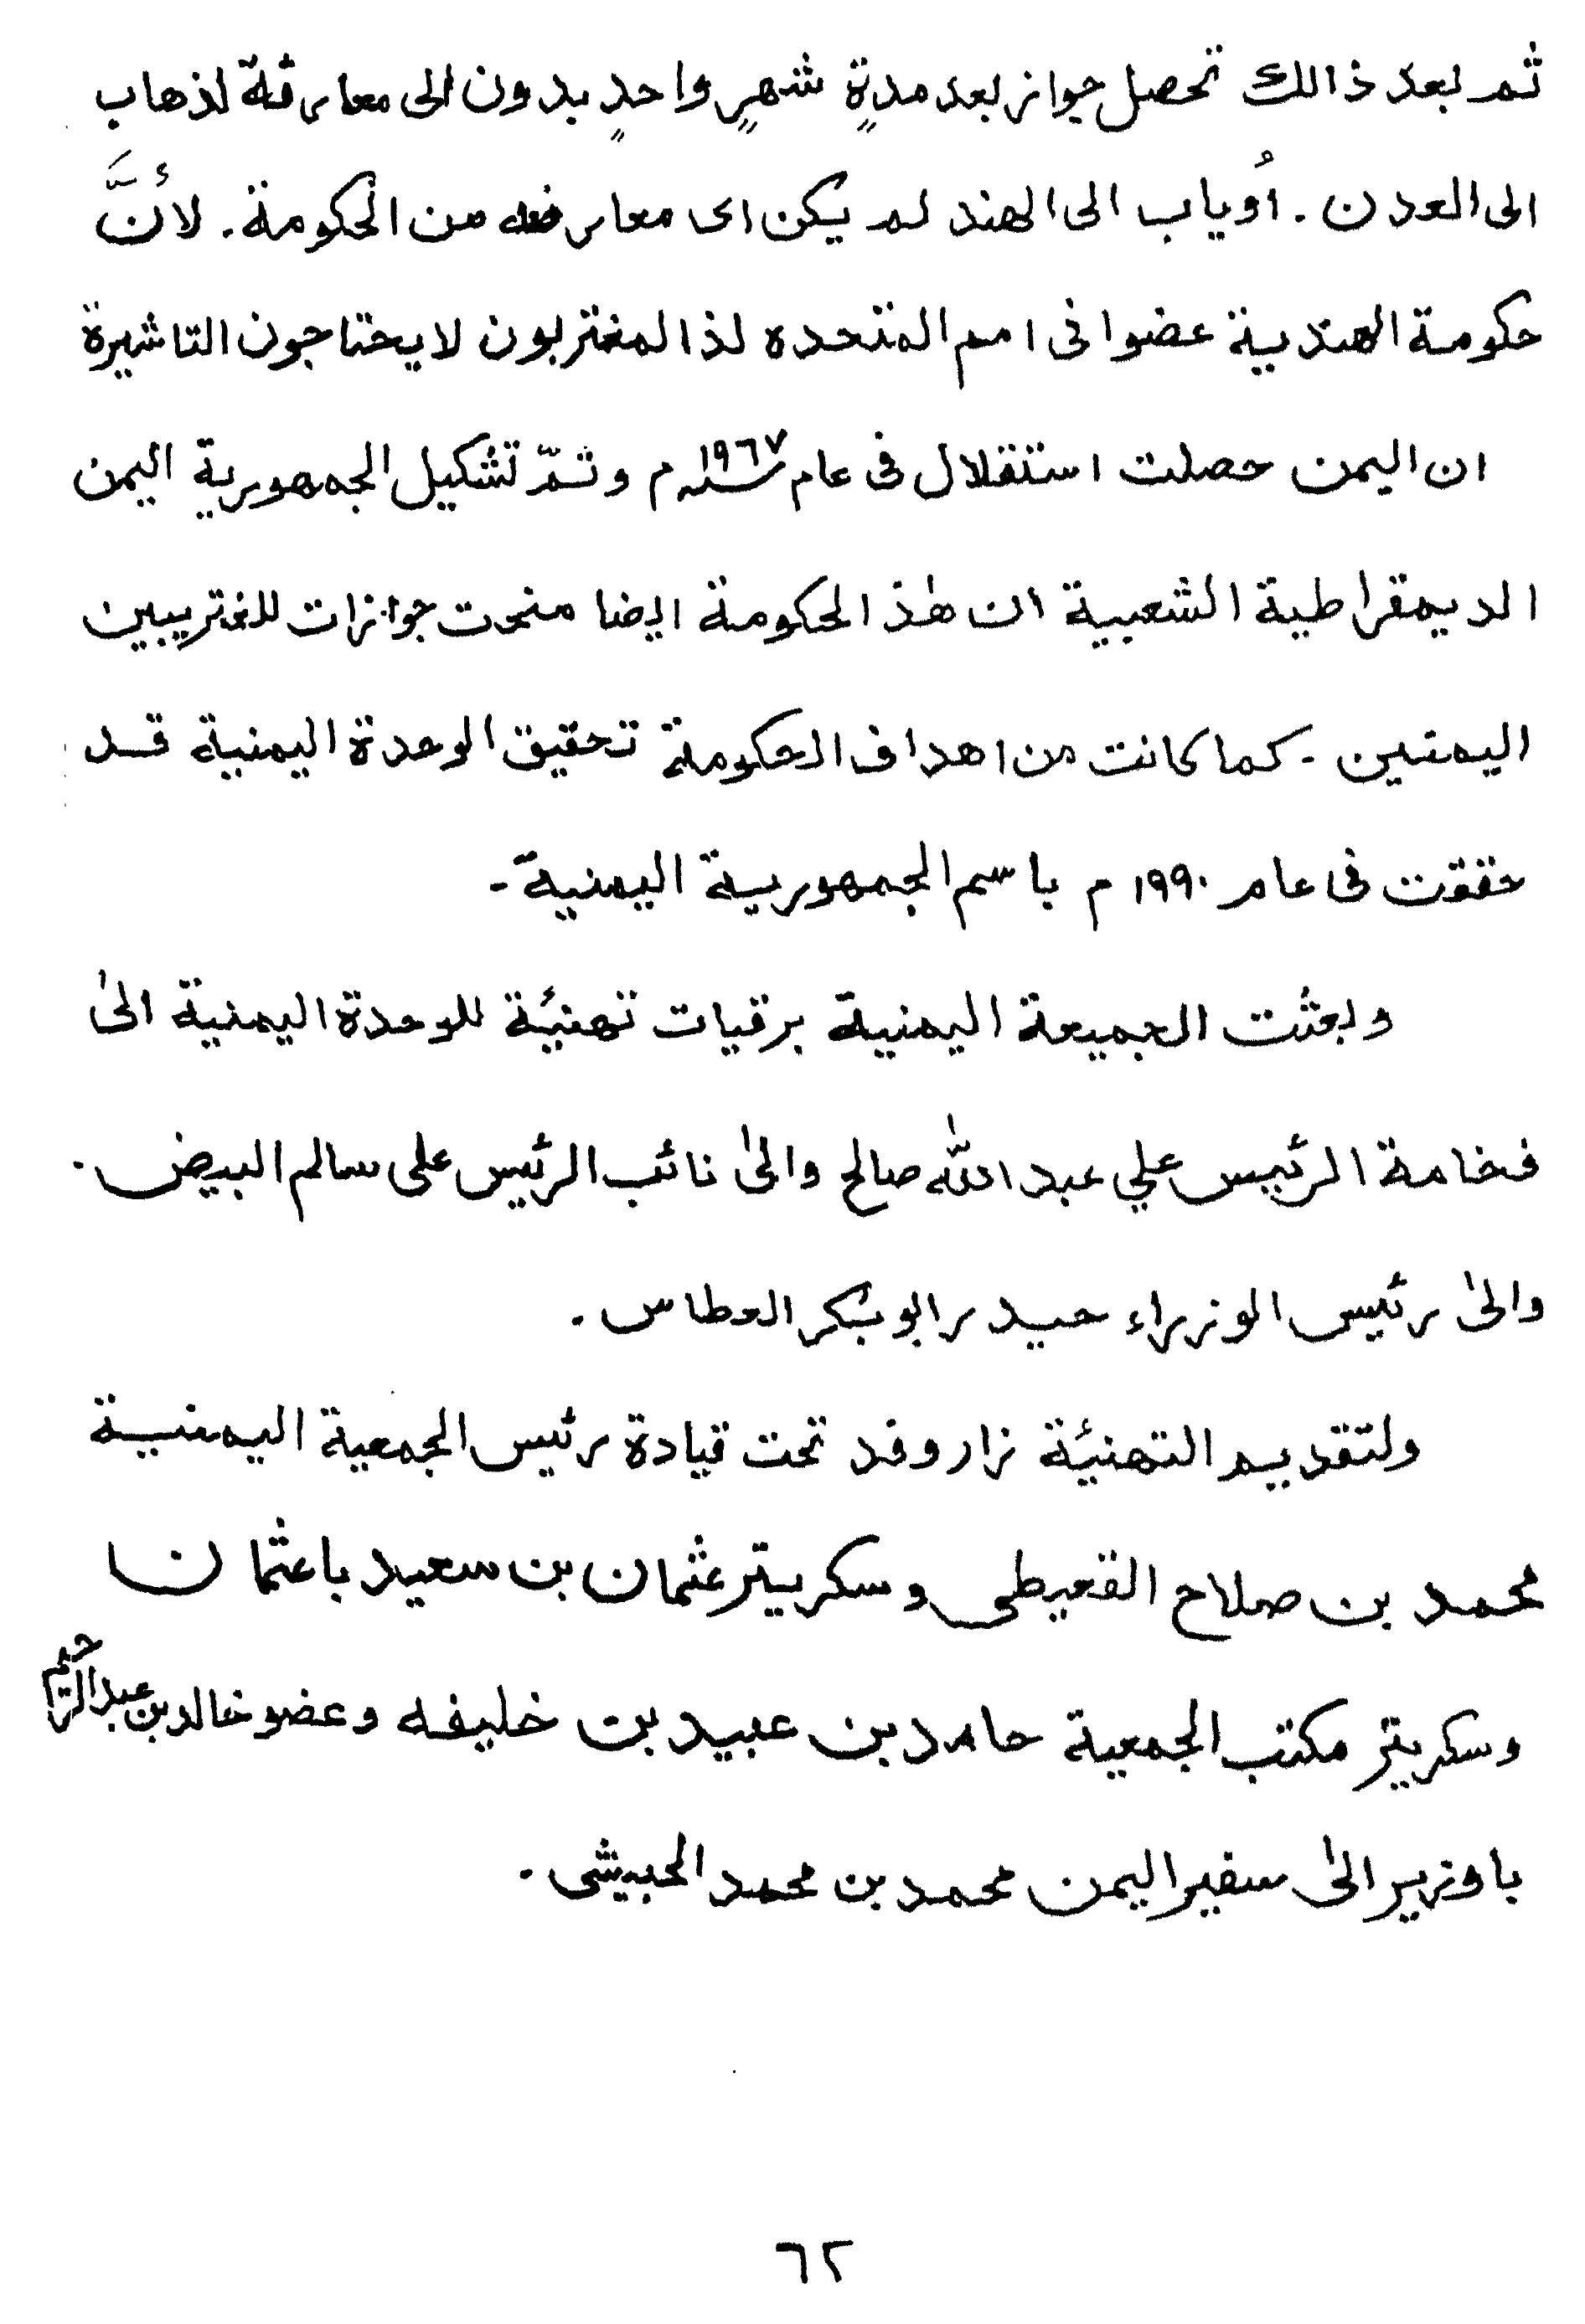 ثم بعد ذالك تحصل جواز بعد مدةٍ شهرٍ واحدٍ بدون الى معارقة لذهاب
الى العدن . أُوياب الى الهند لم يكن اى معارضه من الحكومة . لأنَّ
حكومة الهندية عضوا فى امم المتحده لذا المغتربون لا يحتاجون التاشيرة
ان اليمن حصلت استقلال فى عام سنه ١٩٦٧ م وتمّ تشكيل الجمهورية اليمن
الديمقراطية الشعبية ان هٰذ الحكومة ايضا منحت جوازات للغتريبين
اليمنين - كما كانت من اهداف الحكومة تحقيق الوحدة اليمنية قد
حققت فى عام ١٩٩٠ م باسم الجمهورية اليمنية -
وبعثت الجميعة اليمنية برقيات تهنئة للوحدة اليمنية الىٰ
فخامة الرئيس علي عبد اللّٰه صالح والىٰ نائب الرئيس على سالم البيض .
والىٰ رئيس الوزراء حيدر ابو بكر العطاس .
ولتقديم التهنئة زار وفد تحت قيادة رئيس الجمعية اليمنية
محمد بن صلاح القعيطى وسكريتر عثمان بن سعيد باعثمان
وسكريتر مكتب الجمعية حامد بن عبيد بن خليفه وعضو خالد بن عبد الرحيم
باوزير الىٰ سفير اليمن محمد بن محمد الحبيشى .
٦٢